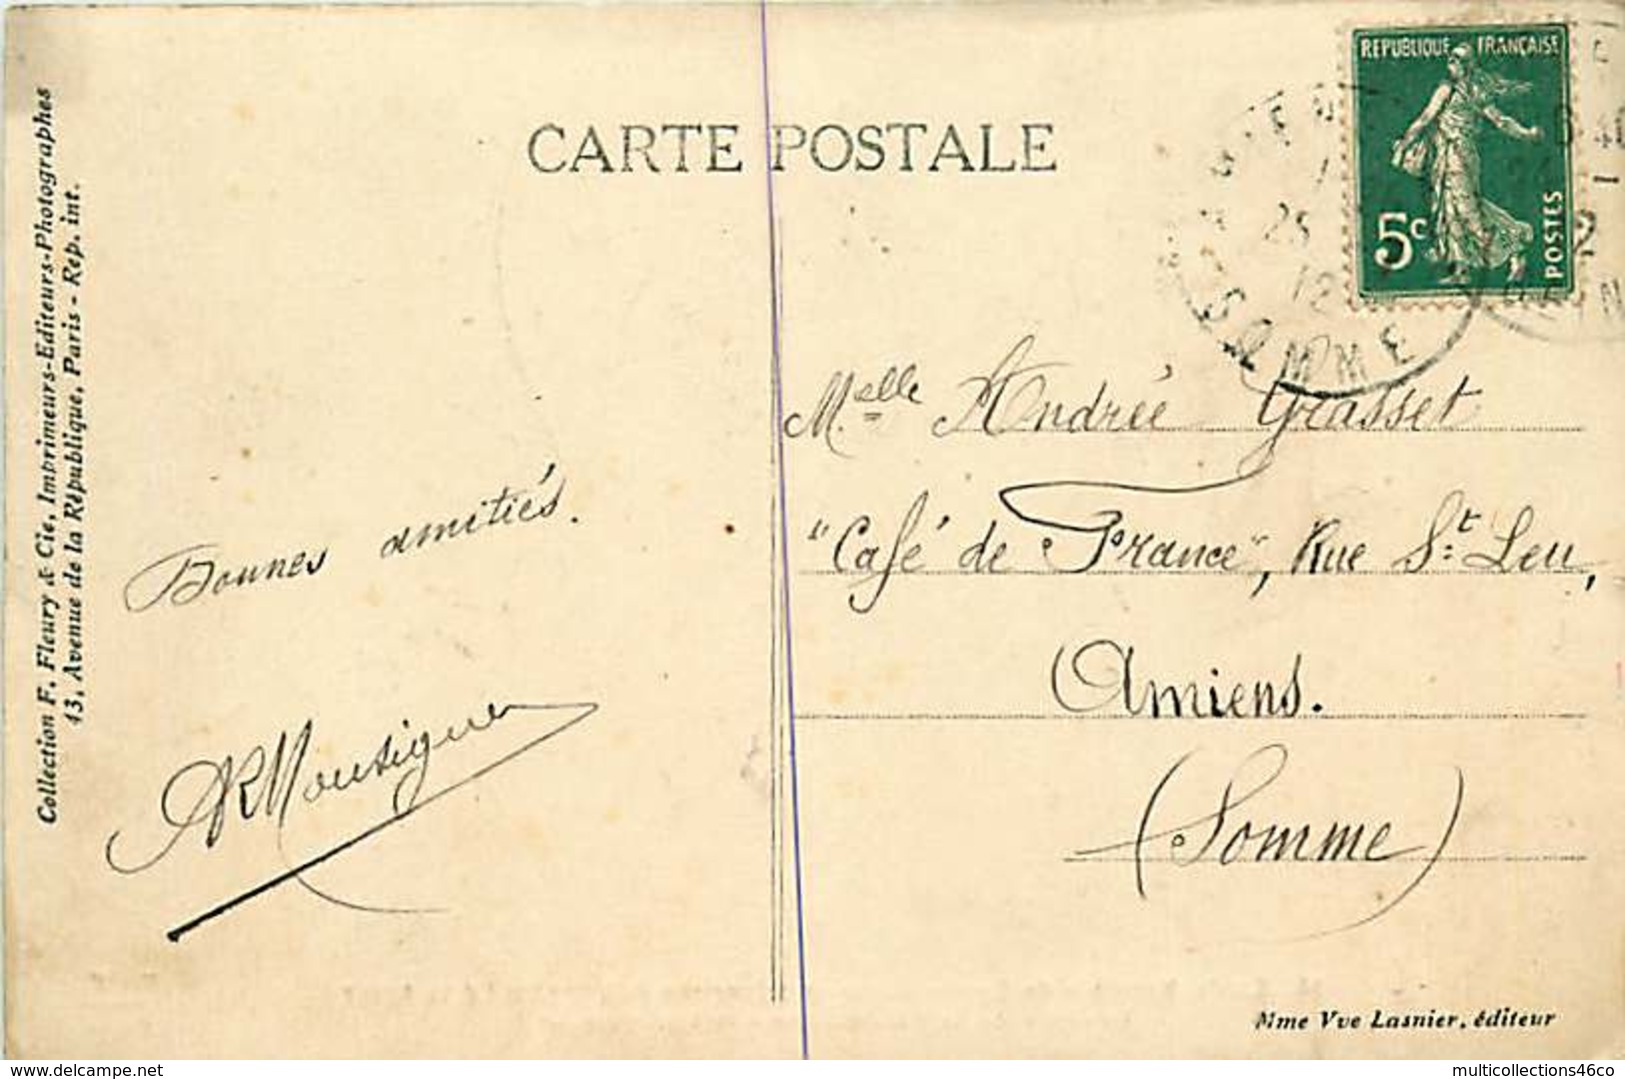 CARTE POSTALE
REPUBLIQUE FRANÇAISE
5c
POSTES
SOMME
Collection F. Fleury & Cie, Imprimeurs-Editeurs-Photographes
43, Avenue de la République, Paris - Rep. int.
Bonnes amitiés.
Melle Andrée Grasset
"Café de France", Rue St. Leu,
Amiens.
(Somme)
Mme Vve Lasnier, éditeur
https://www.delcampe.net
multicollections46co